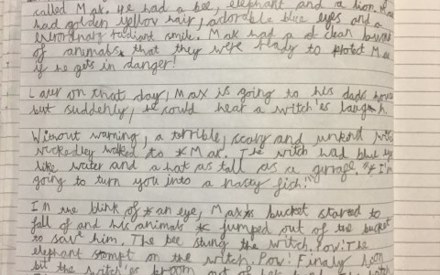 called Max. He had a bee, elephant and a lion. He
had golden yellow hair, adorable blue eyes and a
radiant smile. Max had a clear bucket
of animals that they were ready to protect Max
if he gets in danger!
Later on that day, Max is going to his dads house
but suddenly, he could hear a witch'es laugh
Without warning, a terrible, scary and unkind witch
wickedley walked to Max. The witch had blue eyes
like water and a hat as tall as a garage. "I'm
going to turn you into a nasty fish!"
In the blink of an eye, Max's bucket started to
fall of and his animals jumped out of the bucket
to save him. The bee stung the witch. Pow! The
elephant stompt on the witch. Pow! Finaly
bit the witch'es broom out of